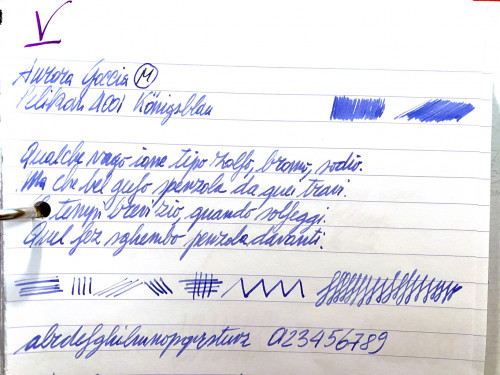 V
Aurora Goccia M
Pelikan 4001 Königsblau
Qualche vago ione tipo zolfo, bromo, sodio.
Ma che bel gufo penzola da quei travi.
tempi brevi zio, quando solfeggi.
Quel fez sghembo penzola davanti.
abcdefghilmnopqrstuvz 0123456789